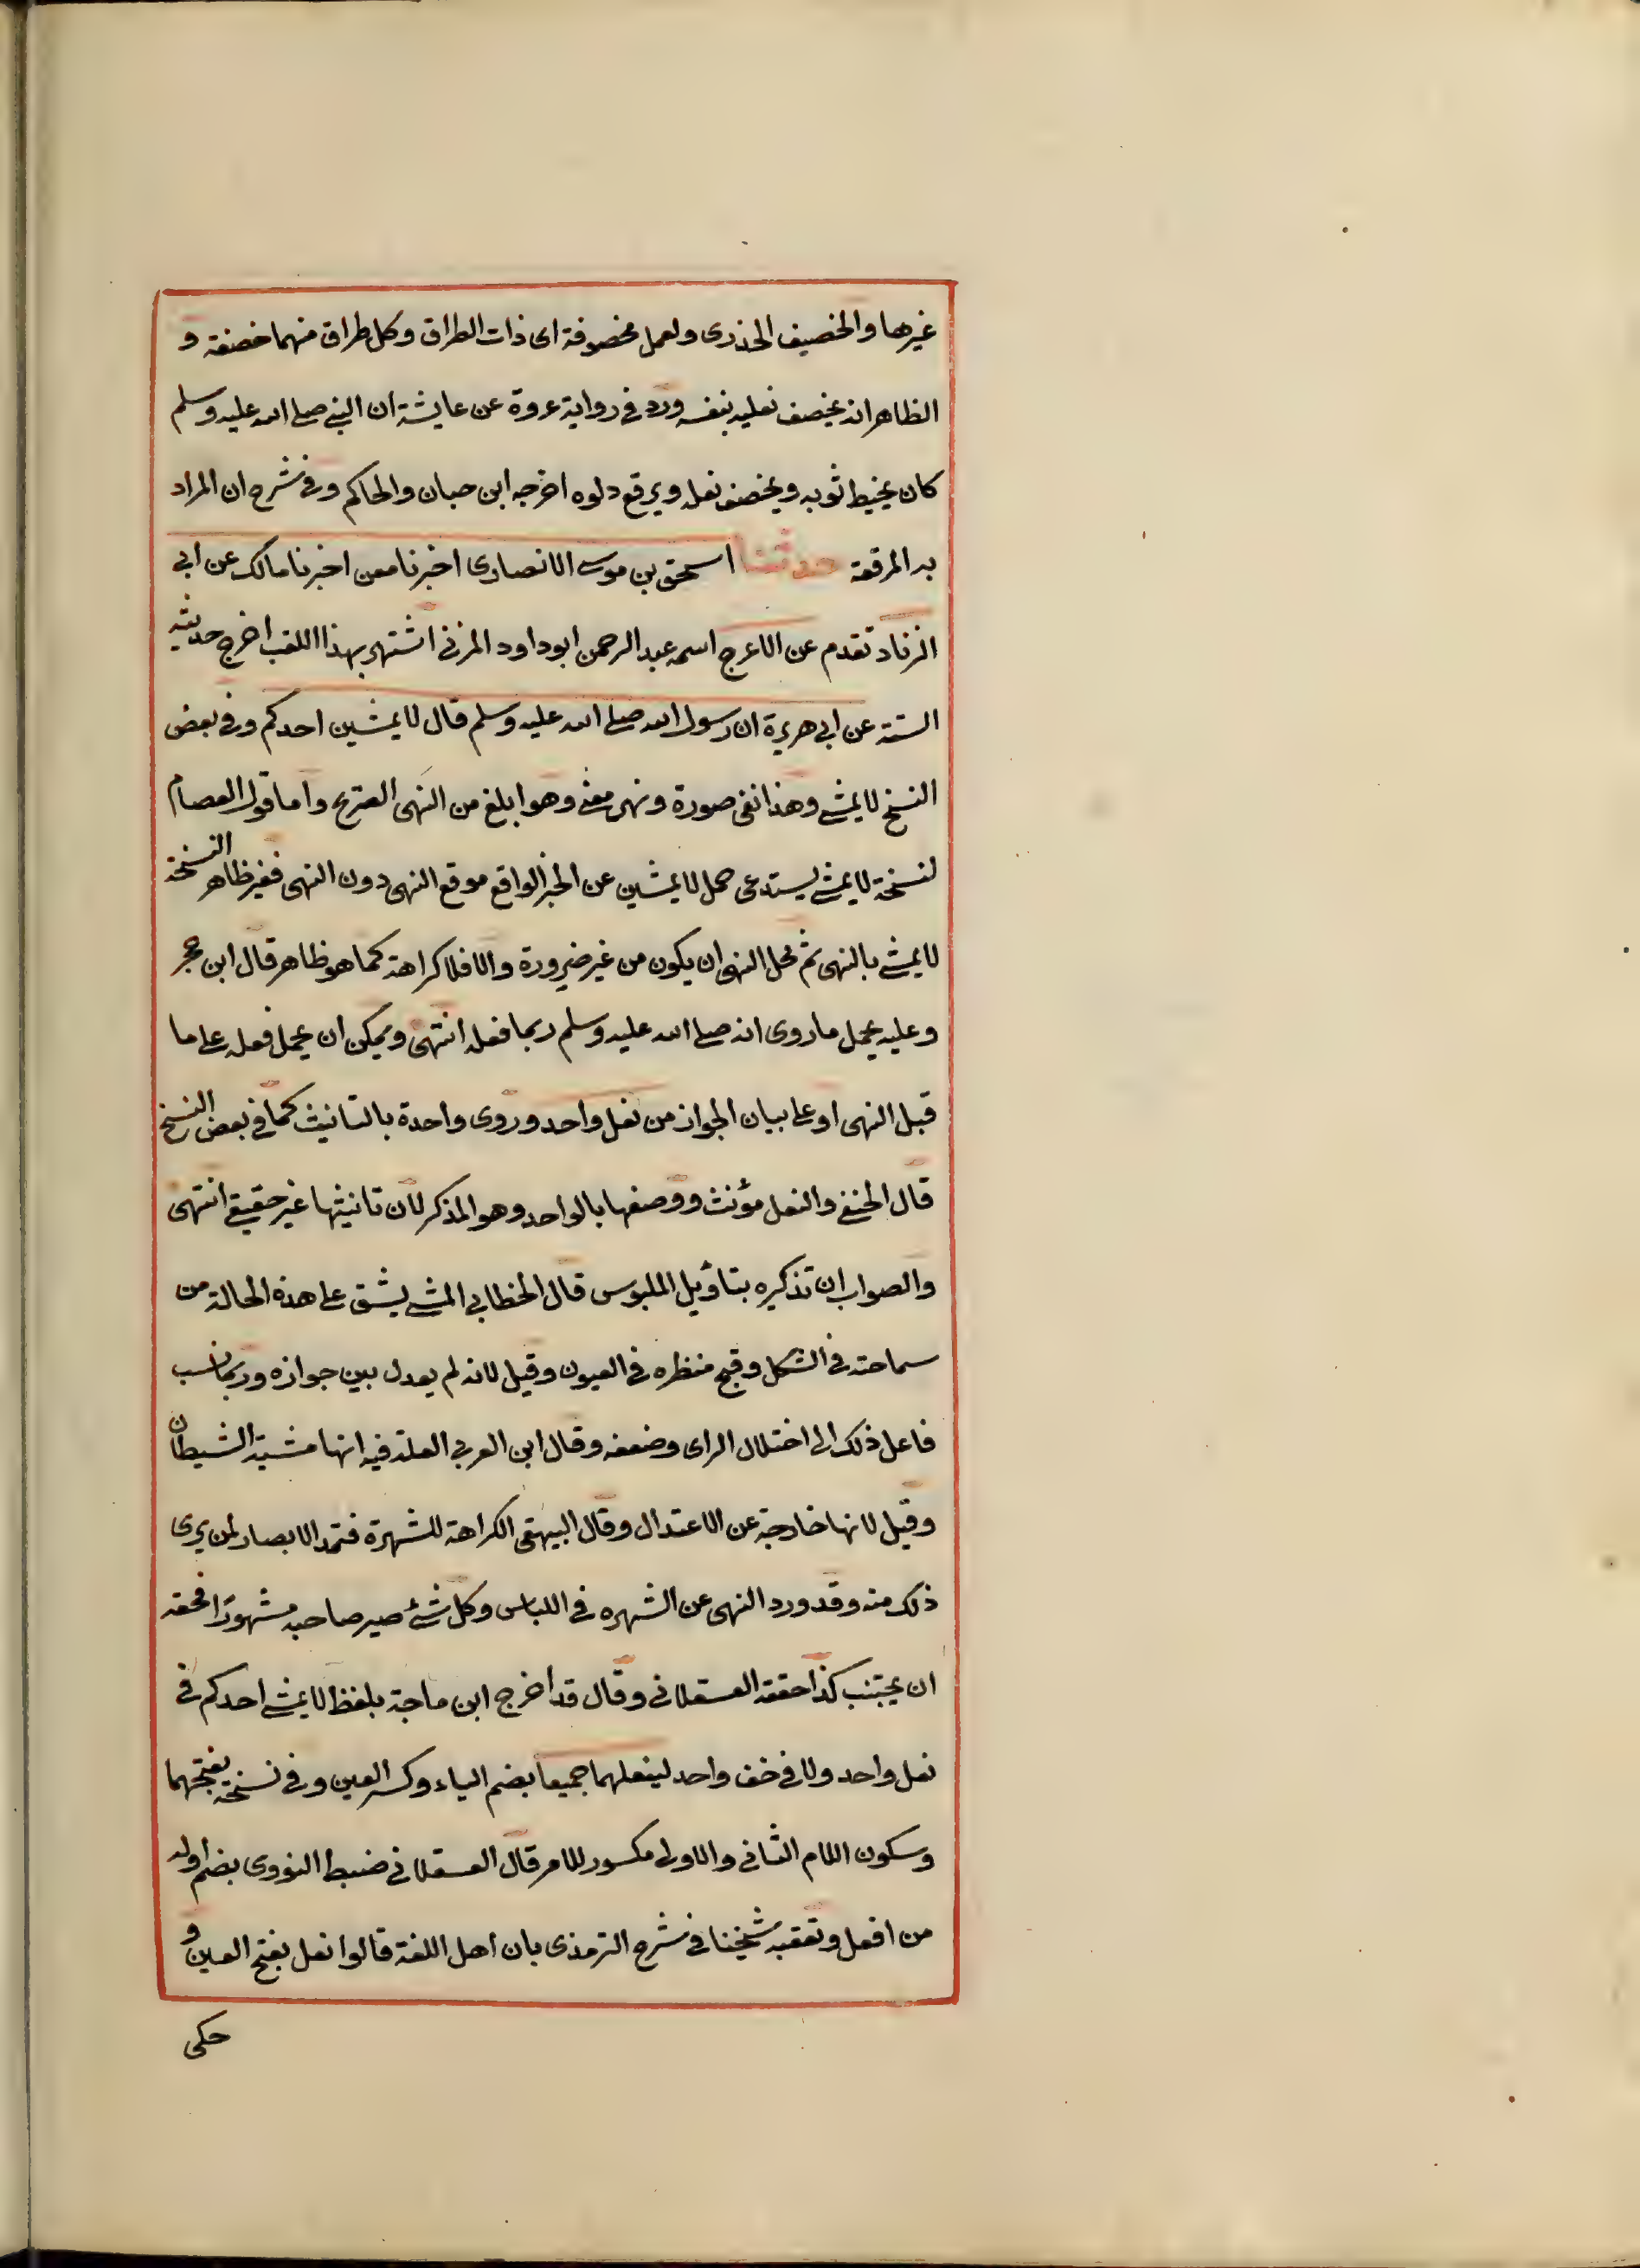 غيرها والخصيف الخذرى ولعمل مخصوفة اى ذات الطراق وكل طراق منهما خصفة و
الظاهر انه يخصف نعليه بنفسه ورد فى رواية عروة عن عايشة ان النبى صلى الله عليه وسلم
كان يخيط ثوبه ويخصف نعله ويرقع دلوه اخرجه ابن حبان والحاكم وفى شرح ان المراد
به المرقعة حدثنا اسحق بن موسى الانصارى اخبرنا معن اخبرنا مالك عن ابى
الزناد تقدم عن الاعرج اسمه عبد الرحمن ابو داود المزنى اشتهر بهذا اللقب اخرج حديثه
الستة عن ابى هريرة ان رسول الله صلى الله عليه وسلم قال لا يمشين احدكم وفى بعض
النسخ لا يمشى وهذا نفى صورة ونهى معنى وهو ابلغ من النهى الصريح واما قول العصام
لنسخة لا يمشى يستدعى حمل لا يمشين عن الخبر الواقع موقع النهى دون النهى فغير ظاهر النسخة
لا يمشى بالنهى ثم محل النهى ان يكون من غير ضرورة والا فلا كراهة كما هو ظاهر قال ابن حجر
وعليه يحمل ما روى انه صلى الله عليه وسلم ربما فعله انتهى ويمكن ان يحمل فعله على ما
قبل النهى او على بيان الجواز من نعل واحد وروى واحدة بالتانيث كما فى بعض النسخ
قال الحنفى والنعل مؤنث ووصفها بالواحد وهو المذكر لان تانيثها غير حقيقى انتهى
والصواب ان تذكيره بتأويل الملبوس قال الخطابى المشى يشق على هذه الحالة من
سماحته فى الشكل وقبح منظره فى العيون وقيل لانه لم يعدل بين جوازه وربما نسب
فاعل ذلك الى اختلال الراى وضعفه وقال ابن العربى العلة فيه انها مشية الشيطان
وقيل لانها خارجة عن الاعتدال وقال البيهقى الكراهة للشهرة فتمد الابصار لمن يرى
ذلك منه وقد ورد النهى عن الشهره فى اللباس وكل شئ صير صاحبه مشهورا فحقه
ان يجتنب كذا حققه العسقلانى وقال قد اخرج ابن ماجة بلفظ لا يمشى احدكم فى
نعل واحد ولا فى خف واحد لينعلهما جميعا بضم الياء وكسر العين وفى نسخة بفتحهما
وسكون اللام الثانى والاولى مكسور للامر قال العسقلانى ضبط النووى بضم اوله
من افعل وتعقبه شيخنا فى شرح الترمذى بان اهل اللغة قالوا نعل بفتح العين و
حكى